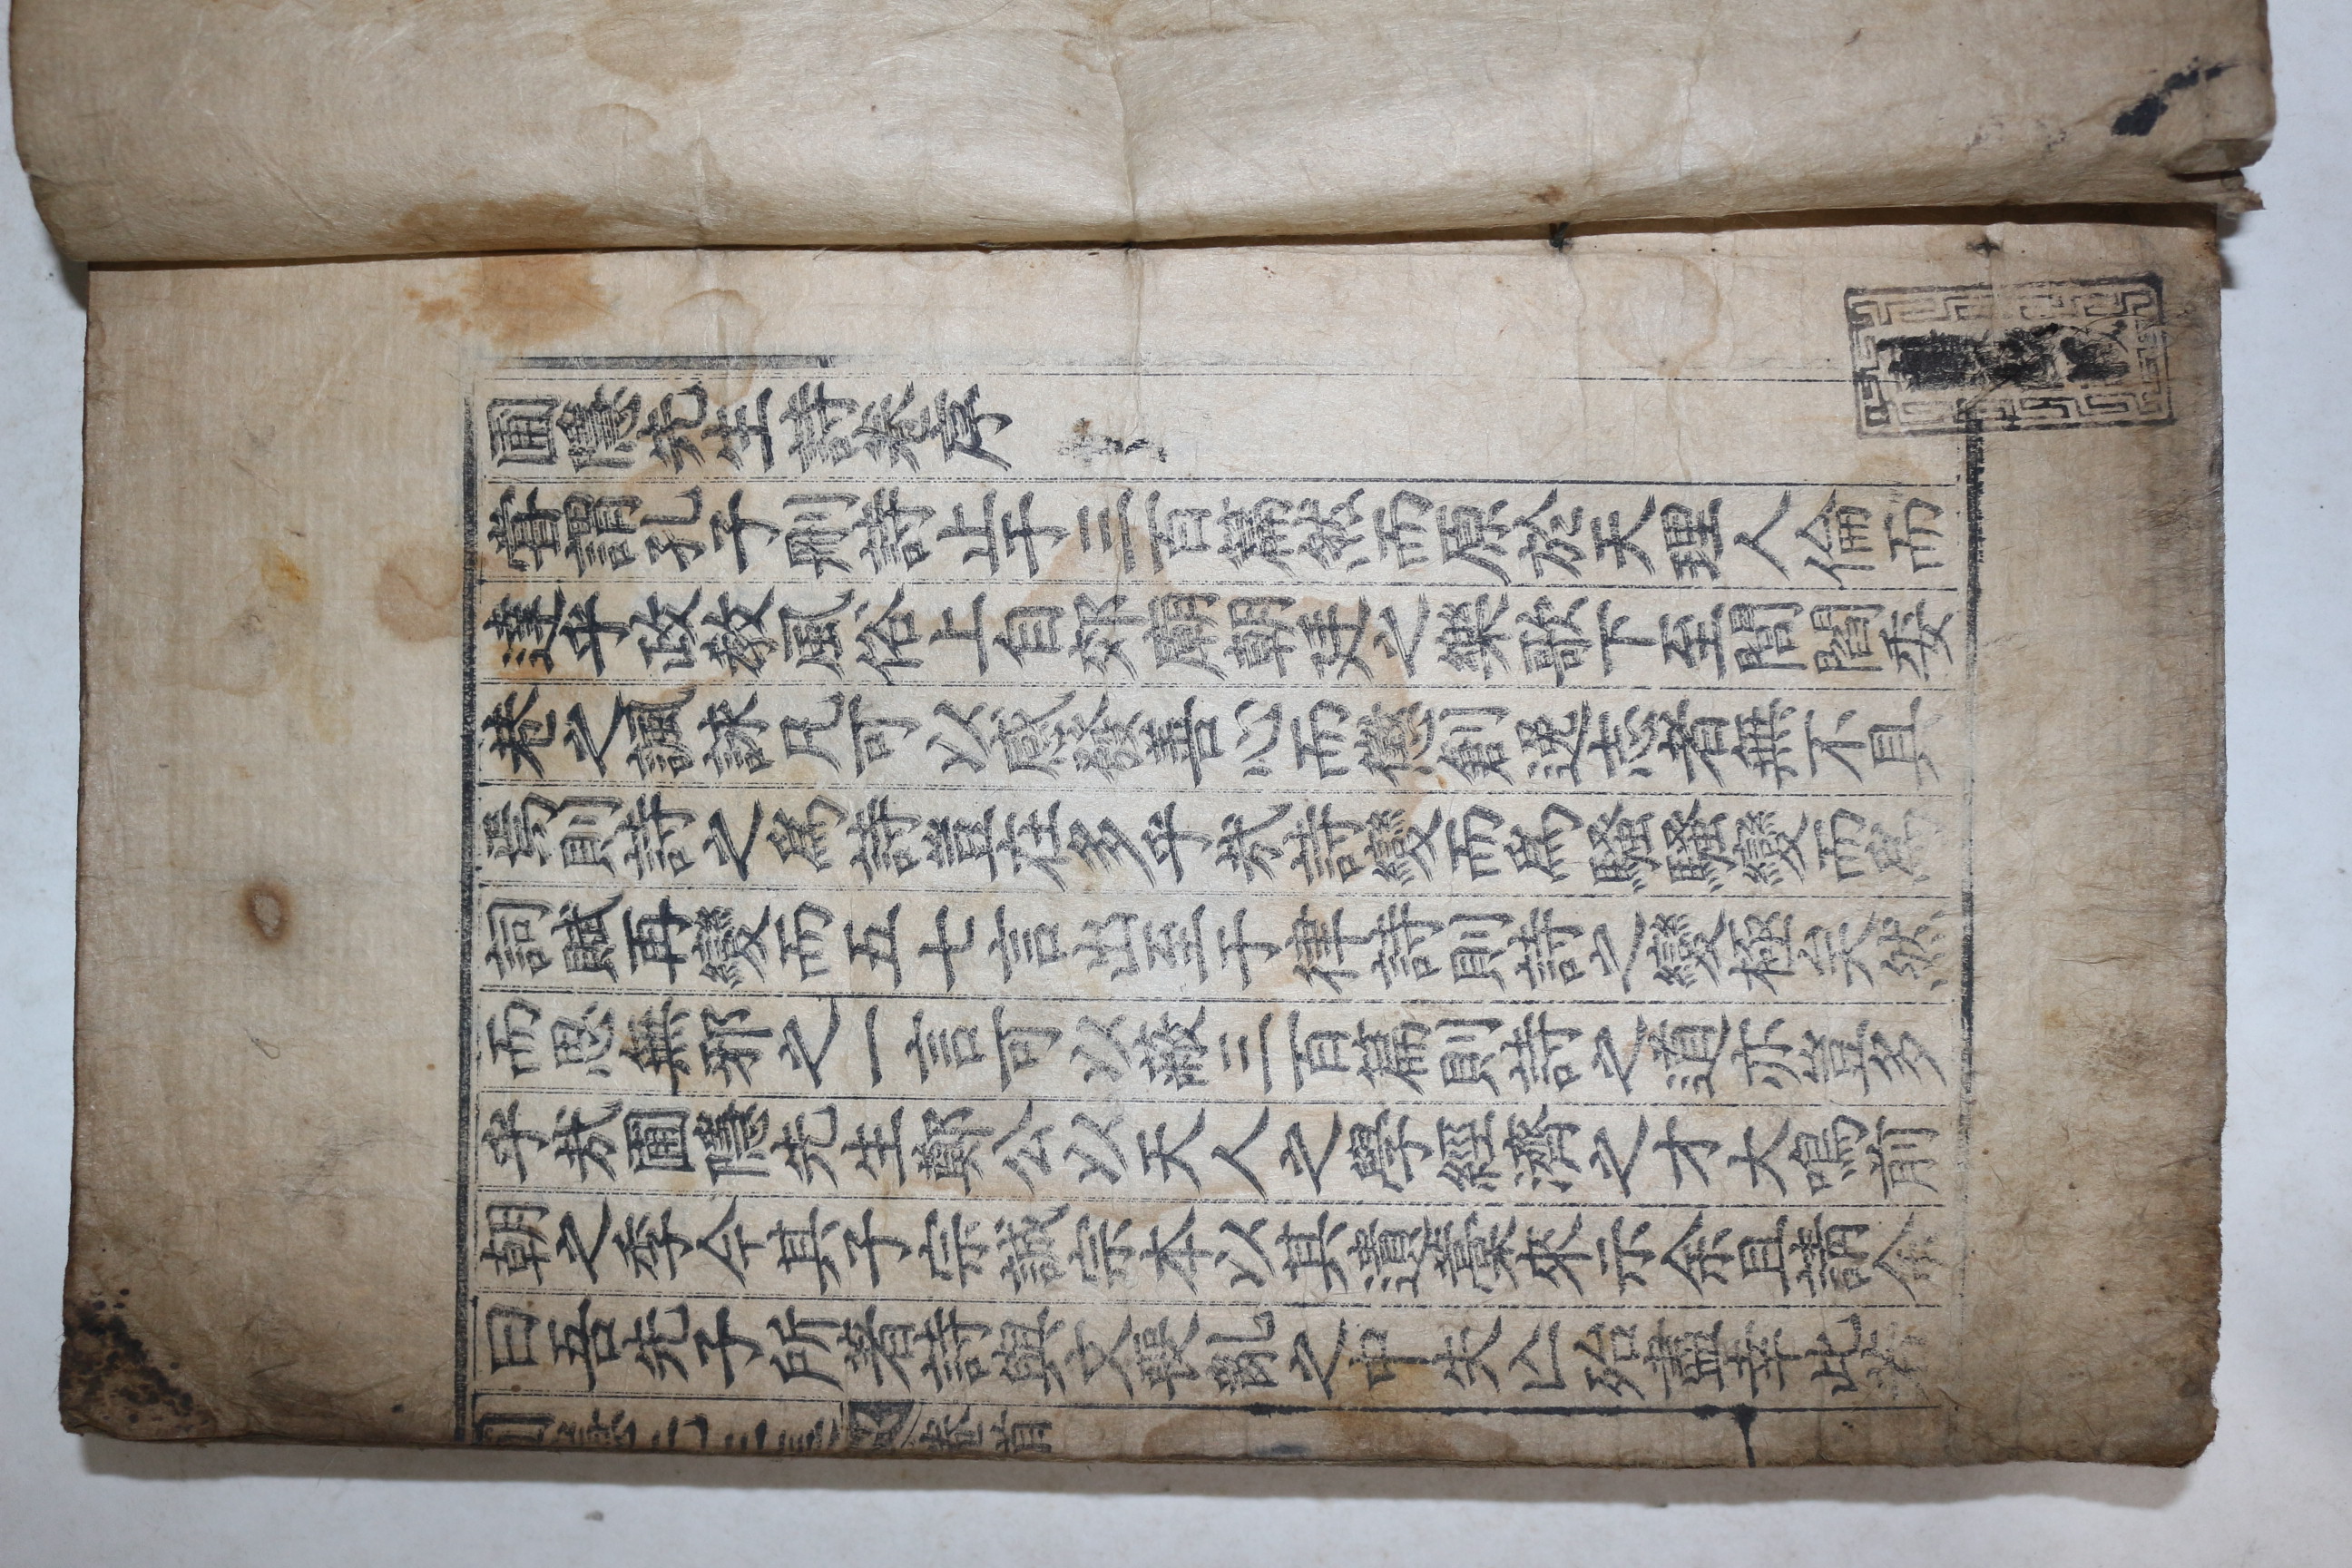 圃隱先生詩卷序
嘗謂孔子刪詩止于三百篇然而原於天理人倫而
達乎政教風俗上自郊廟朝廷之樂歌下至閭閻委
巷之諷詠凡可以感發善心而懲創逸志者無不具
焉則詩之爲詩豈在多乎哉詩變而爲騷騷變而爲
詞賦再變而五七言出至于律詩則詩之變極矣然
而思無邪之一言可以蔽三百篇則詩之道亦豈多
乎哉圃隱先生鄭公以天人之學經濟之才大鳴前
朝之季今其子宗誠宗本以其遺藁來示余且謂余
曰吾先子所著詩與文喪亂之中失亡殆盡幸此